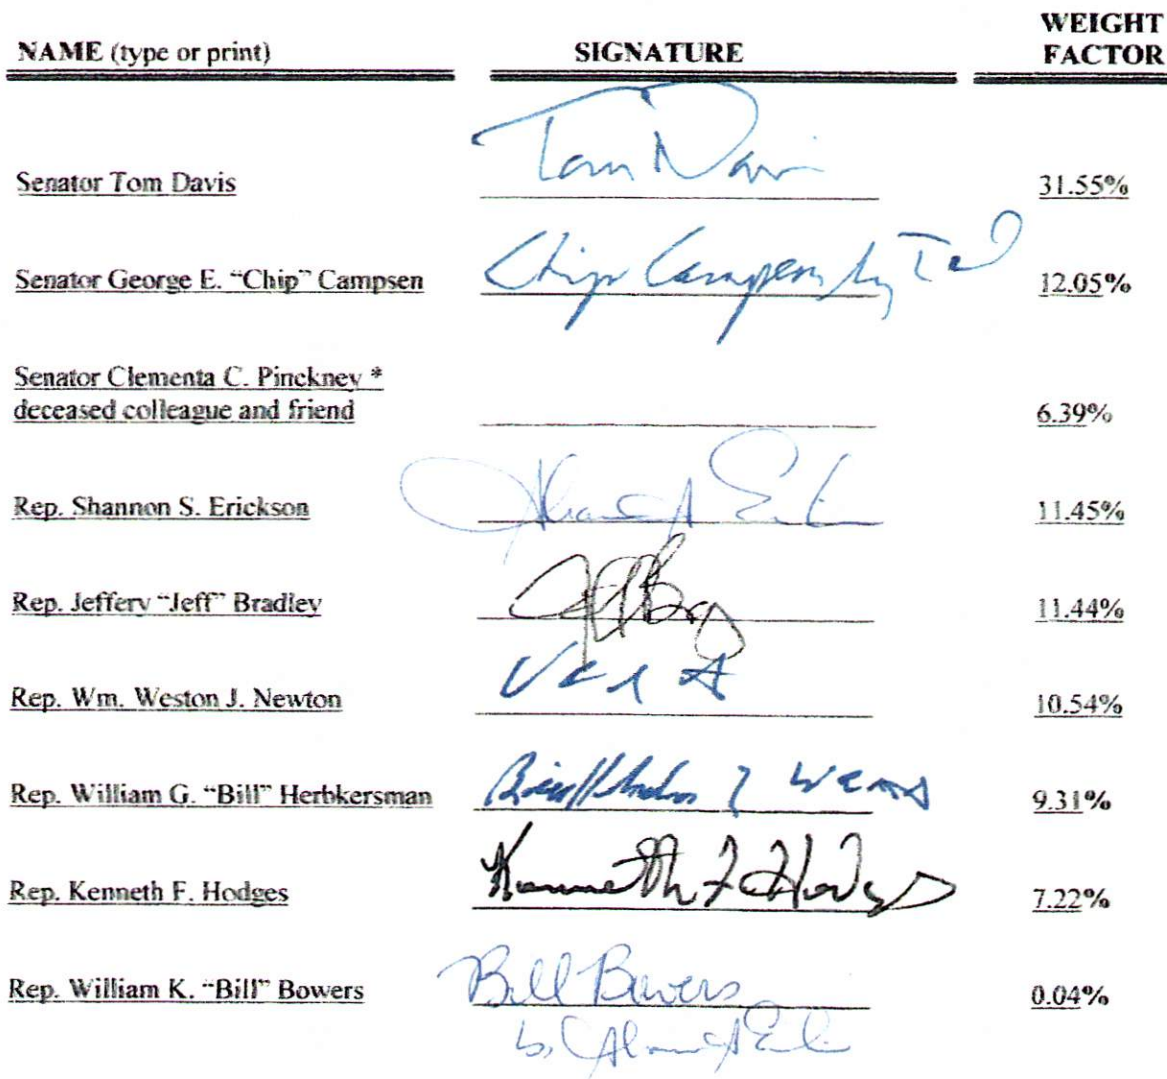 NAME (type or print) SIGNATURE WEIGHT FACTOR
Senator Tom Davis Tom Davis 31.55%
Senator George E. “Chip” Campsen Chip Campsen by Tom D 12.05%
Senator Clementa C. Pinckney *
deceased colleague and friend 6.39%
Rep. Shannon S. Erickson 11.45%
Rep. Jeffery “Jeff” Bradley 11.44%
Rep. Wm. Weston J. Newton 10.54%
Rep. William G. “Bill” Herbkersman 9.31%
Rep. Kenneth F. Hodges Kenneth F Hodges 7.22%
Rep. William K. “Bill” Bowers Bill Bowers 0.04%
by